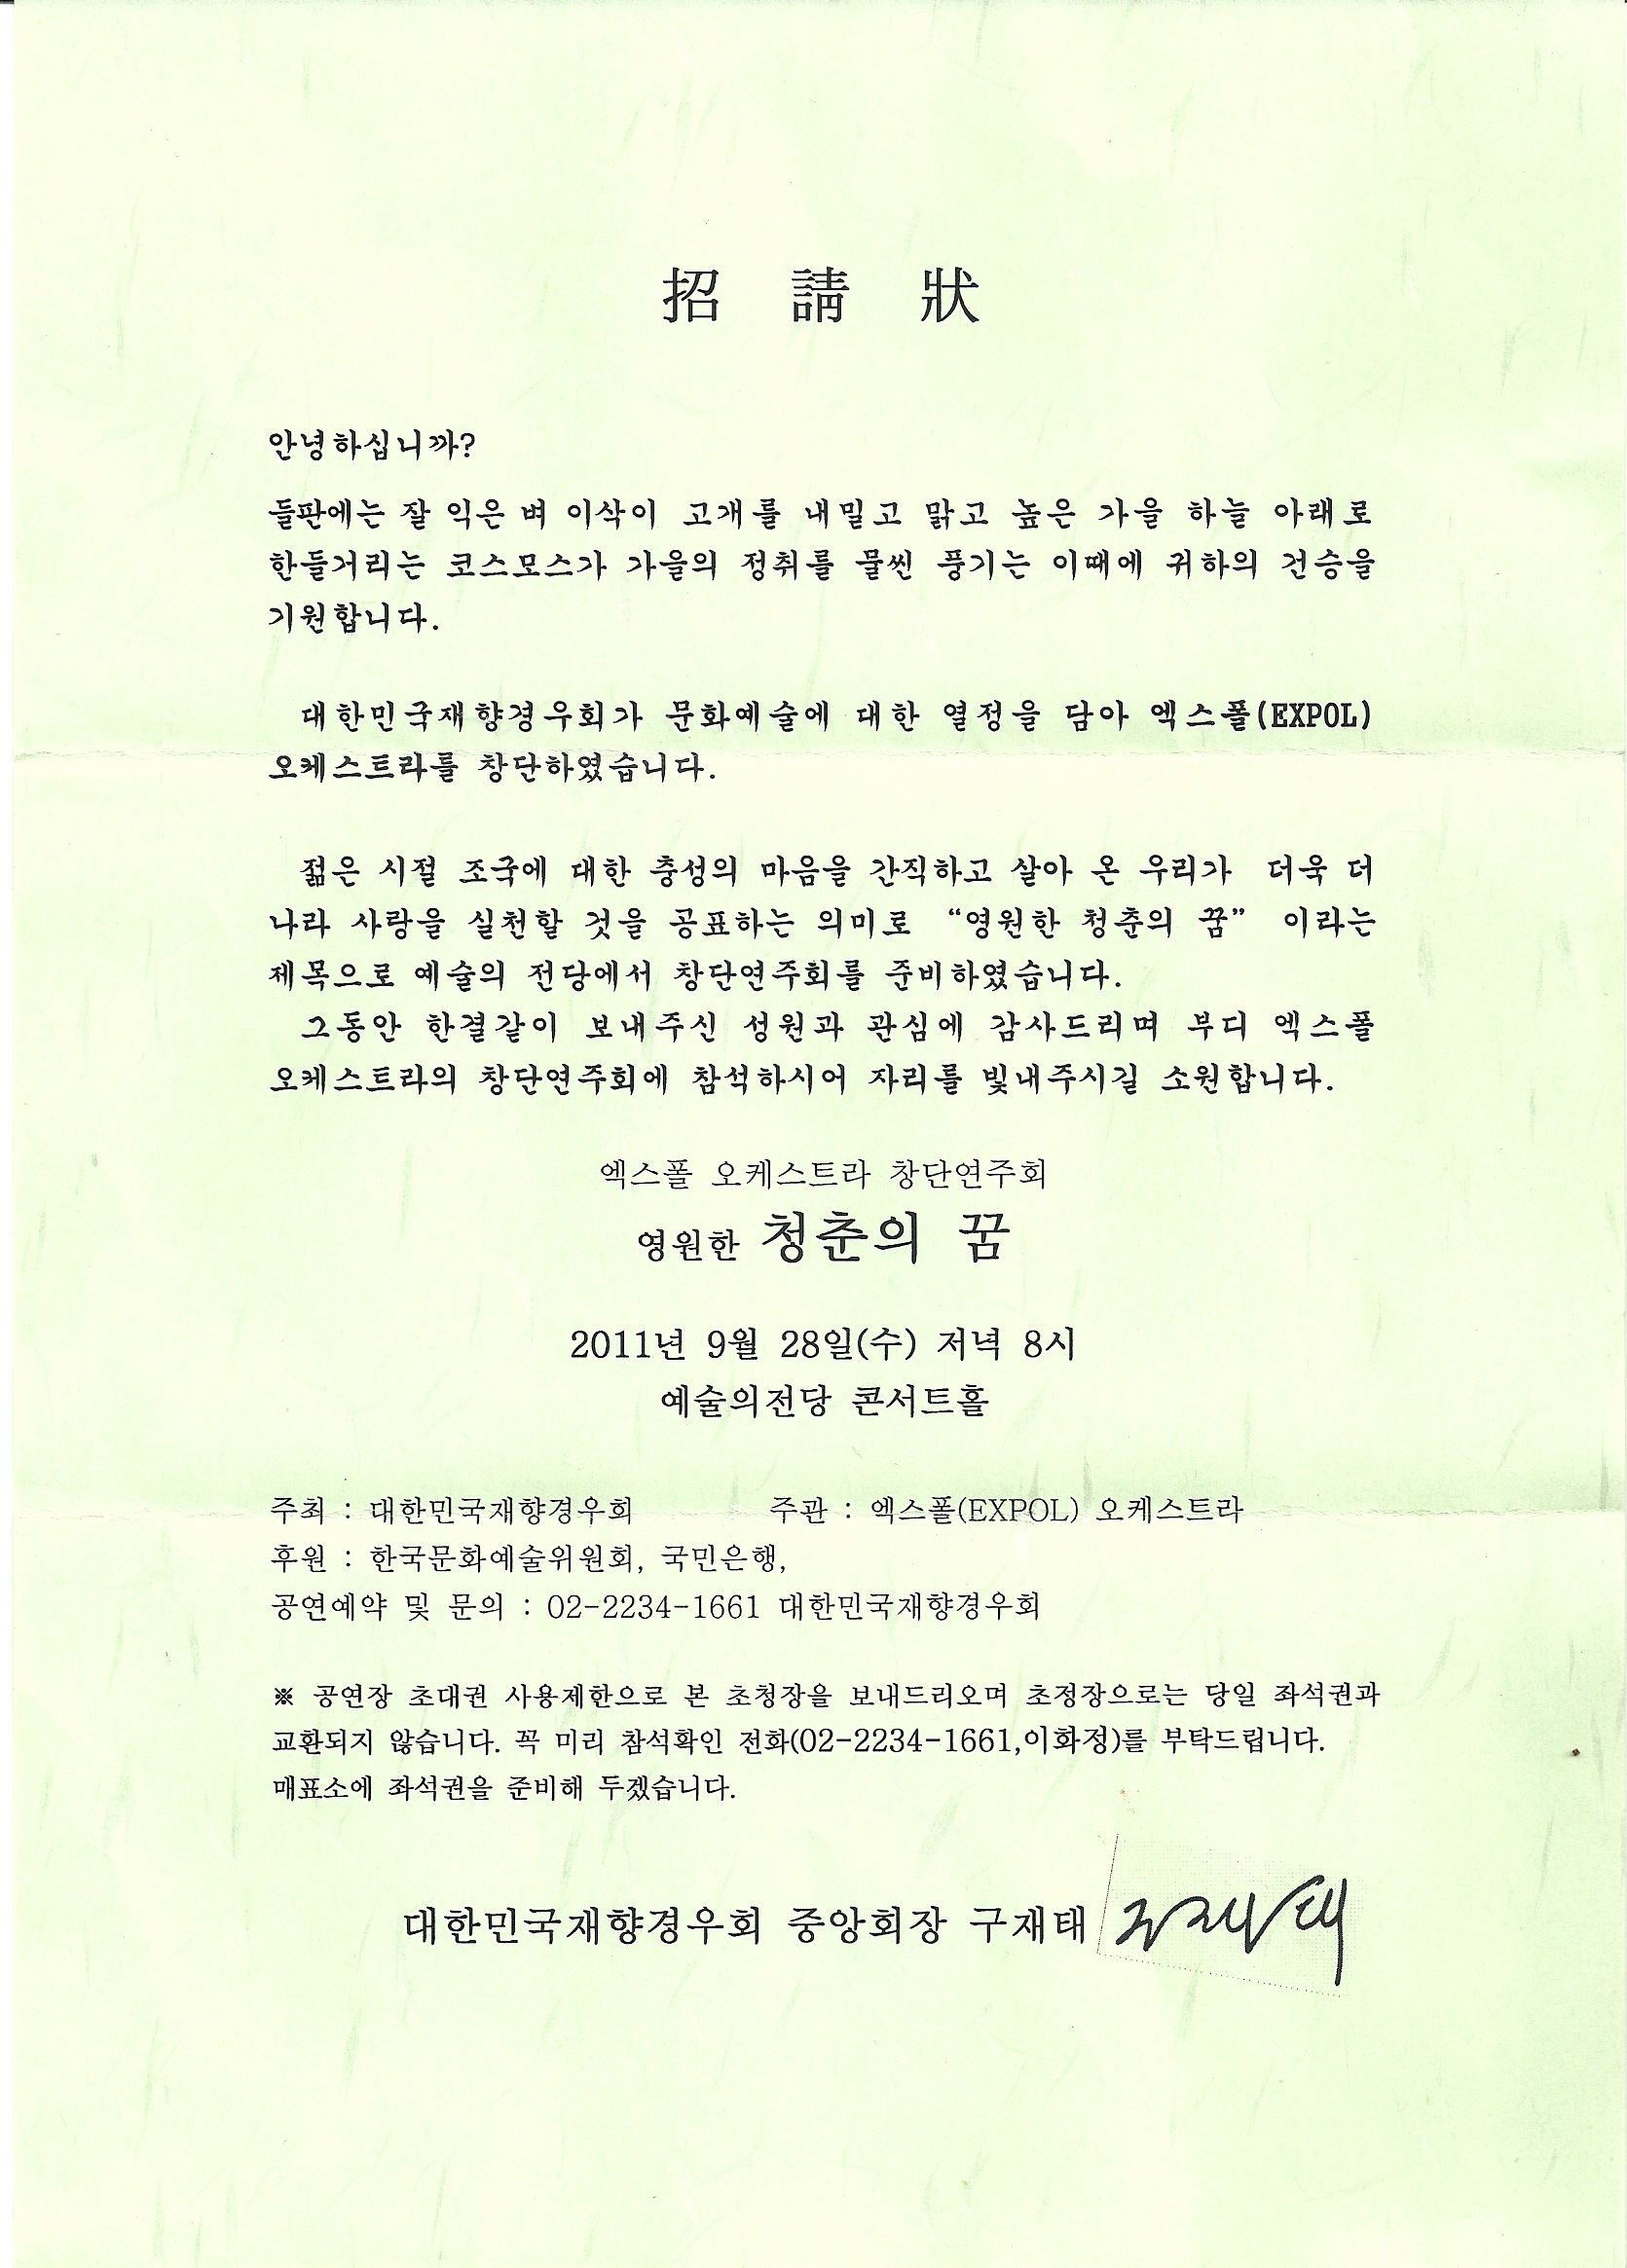 招 請 狀
안녕하십니까?
들판에는 잘 익은 벼 이삭이 고개를 내밀고 맑고 높은 가을 하늘 아래로
한들거리는 코스모스가 가을의 정취를 물씬 풍기는 이때에 귀하의 건승을
기원합니다.
대한민국재향경우회가 문화예술에 대한 열정을 담아 엑스폴(EXPOL)
오케스트라를 창단하였습니다.
젊은 시절 조국에 대한 충성의 마음을 간직하고 살아 온 우리가 더욱 더
나라 사랑을 실천할 것을 공표하는 의미로 “영원한 청춘의 꿈” 이라는
제목으로 예술의 전당에서 창단연주회를 준비하였습니다.
그동안 한결같이 보내주신 성원과 관심에 감사드리며 부디 엑스폴
오케스트라의 창단연주회에 참석하시어 자리를 빛내주시길 소원합니다.
엑스폴 오케스트라 창단연주회
영원한 청춘의 꿈
2011년 9월 28일(수) 저녁 8시
예술의전당 콘서트홀
주최 : 대한민국재향경우회 주관 : 엑스폴(EXPOL) 오케스트라
후원 : 한국문화예술위원회, 국민은행,
공연예약 및 문의 : 02-2234-1661 대한민국재향경우회
※ 공연장 초대권 사용제한으로 본 초청장을 보내드리오며 초정장으로는 당일 좌석권과
교환되지 않습니다. 꼭 미리 참석확인 전화(02-2234-1661,이화정)를 부탁드립니다.
매표소에 좌석권을 준비해 두겠습니다.
대한민국재향경우회 중앙회장 구재태 구재태